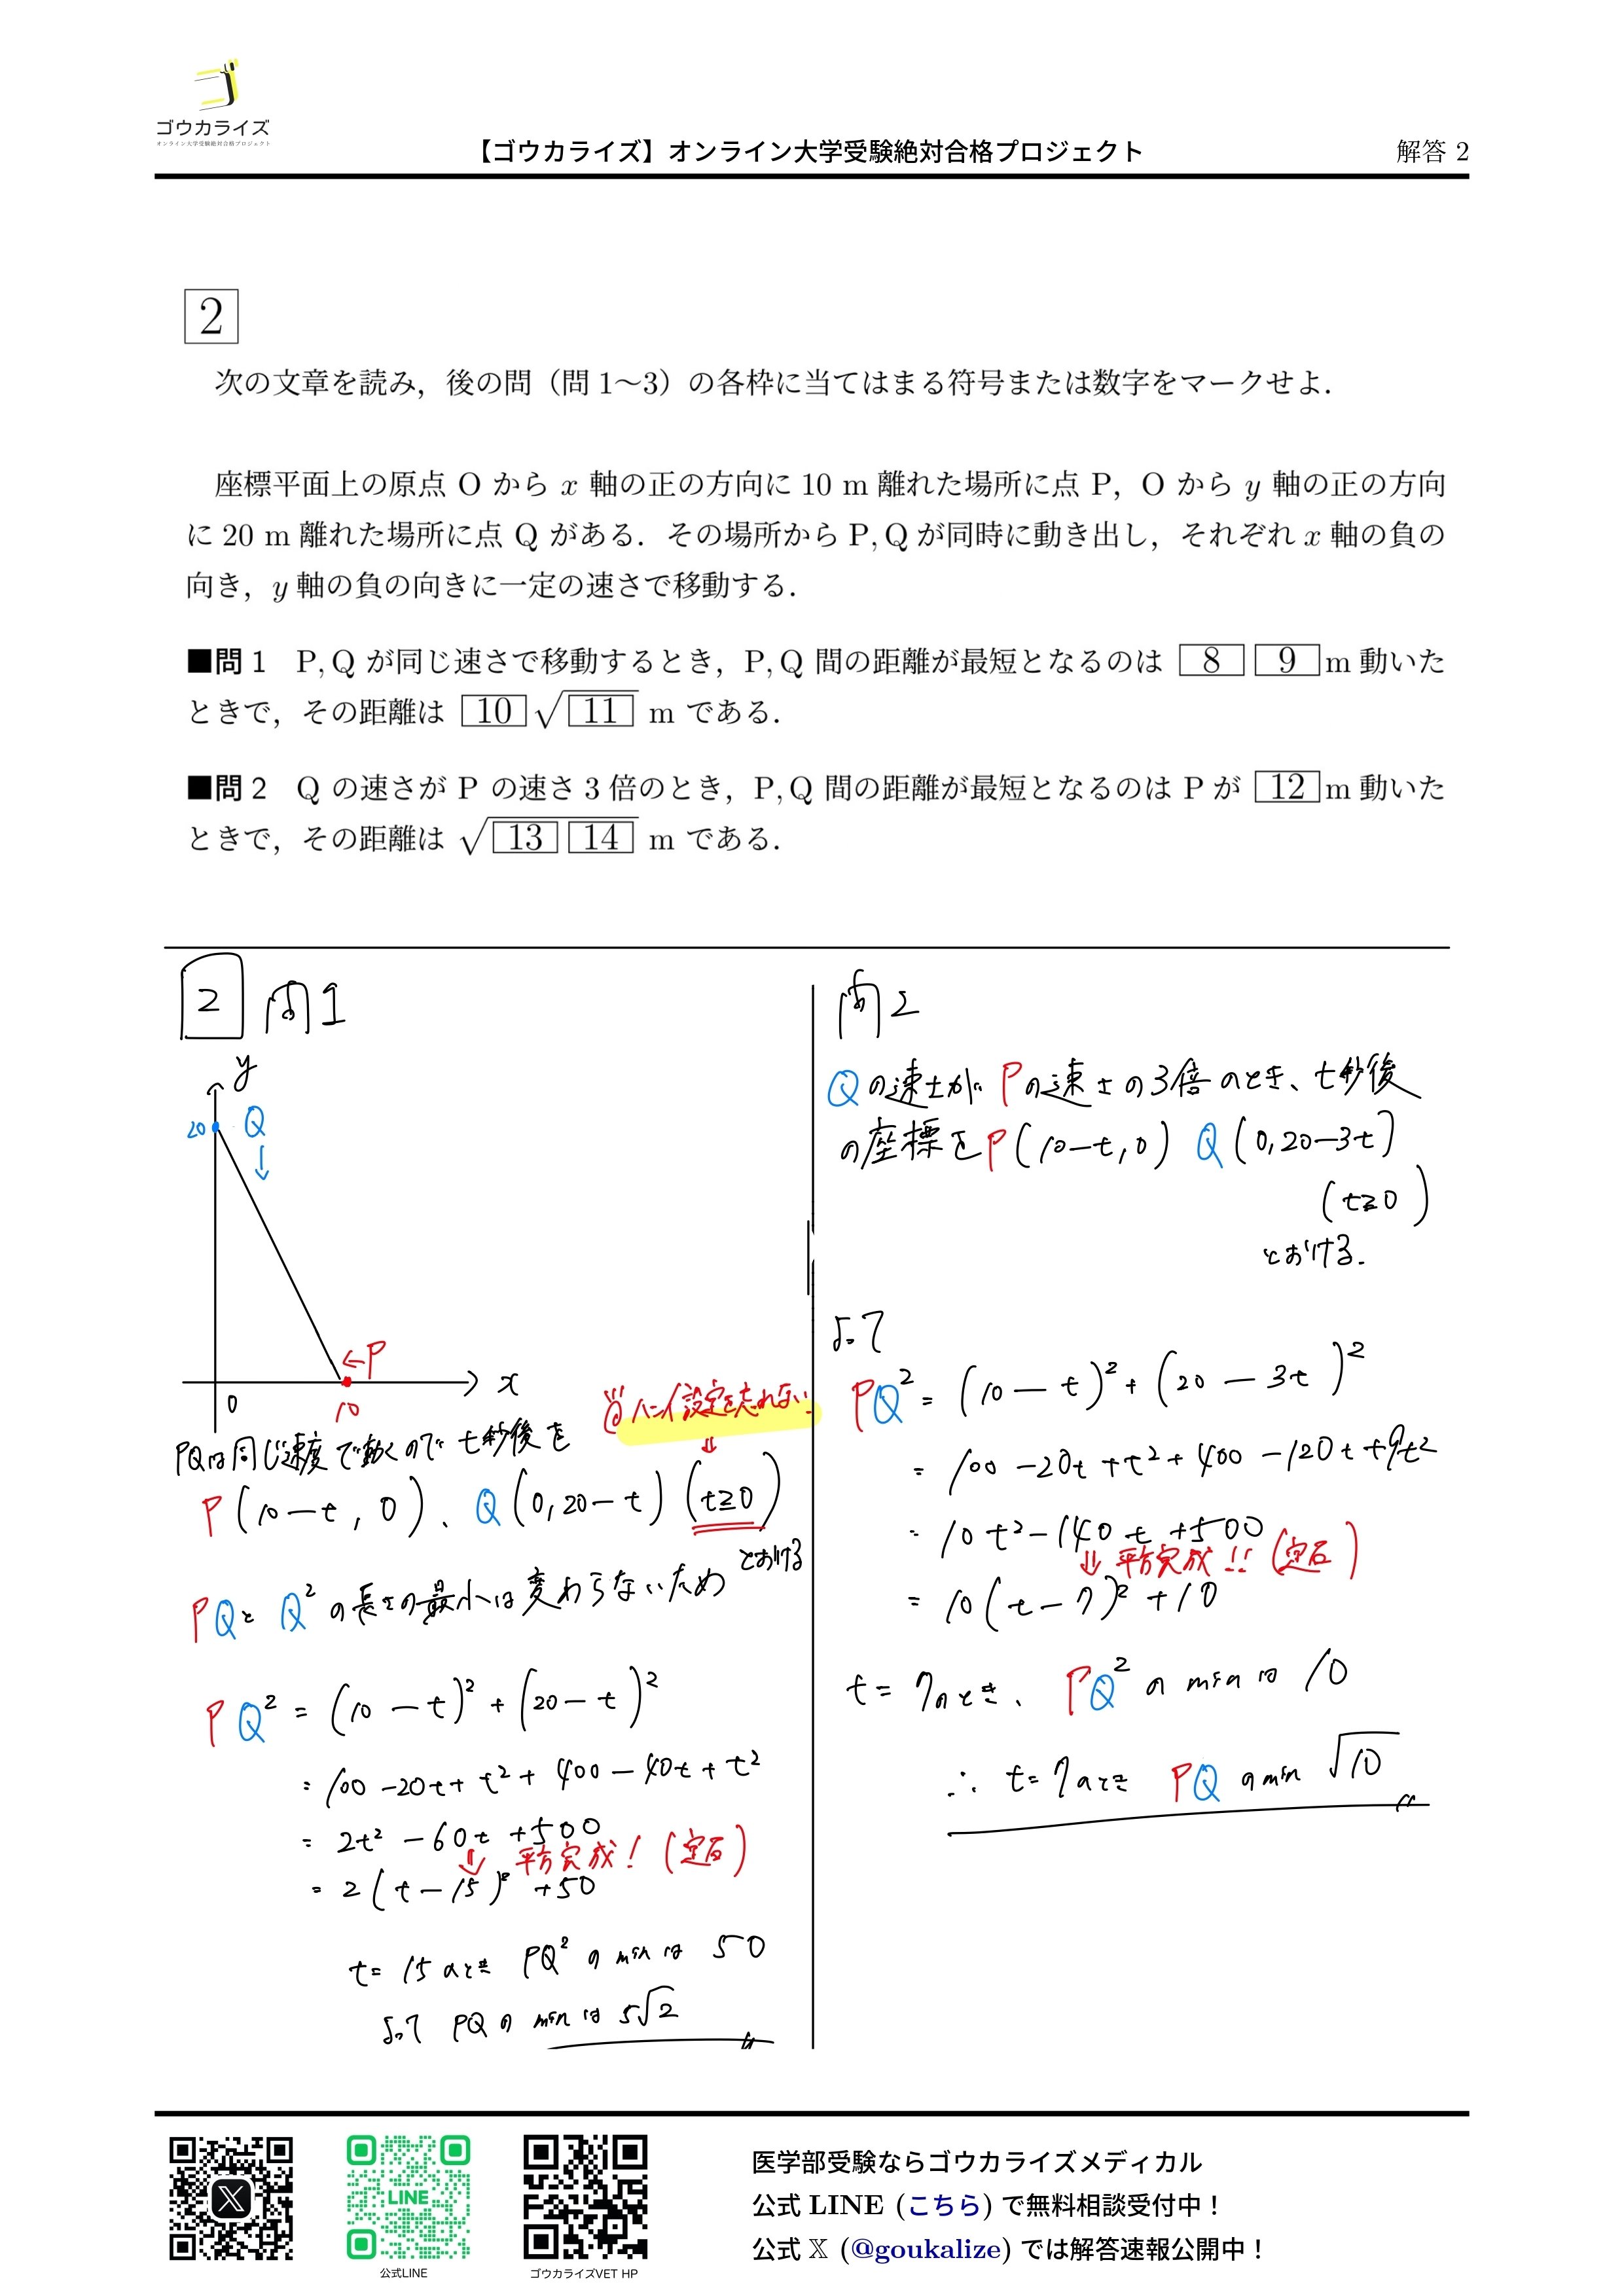 ゴウカライズ
オンライン大学受験絶対合格プロジェクト
【ゴウカライズ】オンライン大学受験絶対合格プロジェクト
解答 2
2
次の文章を読み，後の問（問 1～3）の各枠に当てはまる符号または数字をマークせよ．
座標平面上の原点 O から x 軸の正の方向に 10 m 離れた場所に点 P，O から y 軸の正の方向
に 20 m 離れた場所に点 Q がある．その場所から P, Q が同時に動き出し，それぞれ x 軸の負の
向き，y 軸の負の向きに一定の速さで移動する．
■問 1 P, Q が同じ速さで移動するとき，P, Q 間の距離が最短となるのは 8 9 m 動いた
ときで，その距離は 10 √11 m である．
■問 2 Q の速さが P の速さ 3 倍のとき，P, Q 間の距離が最短となるのは P が 12 m 動いた
ときで，その距離は √13 14 m である．
2 問1
y
20 Q
↓
←P
0 10 x
ハンイ設定を忘れない
⇓
PQは同じ速度で動くので t秒後を
P(10-t, 0)、Q(0, 20-t) (t≧0)
とおける
PQと Q² の長さの最小は変わらないため
PQ² = (10-t)² + (20-t)²
= 100 -20t + t² + 400 -40t + t²
= 2t² -60t +500
⇓ 平方完成! (定石)
= 2(t-15)² +50
t= 15のとき PQ²のminは 50
よって PQのminは 5√2
問2
Qの速さが Pの速さの3倍のとき、t秒後
の座標を P(10-t, 0) Q(0, 20-3t)
(t≧0)
とおける.
よって
PQ² = (10-t)² + (20-3t)²
= 100 -20t +t² + 400 -120t +9t²
= 10t² -140t +500
⇓ 平方完成!! (定石)
= 10(t-7)² +10
t= 7のとき、PQ²のminは 10
∴ t=7のとき PQのmin √10
LINE
公式LINE
ゴウカライズVET HP
医学部受験ならゴウカライズメディカル
公式 LINE (こちら) で無料相談受付中！
公式 𝕏 (@goukalize) では解答速報公開中！